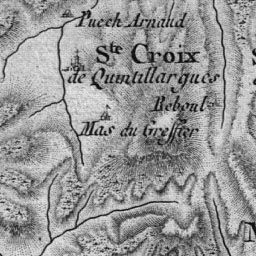 Puech Arnaud
Ste Croix
de Quintillargues
Reboul
Mas du Greffier